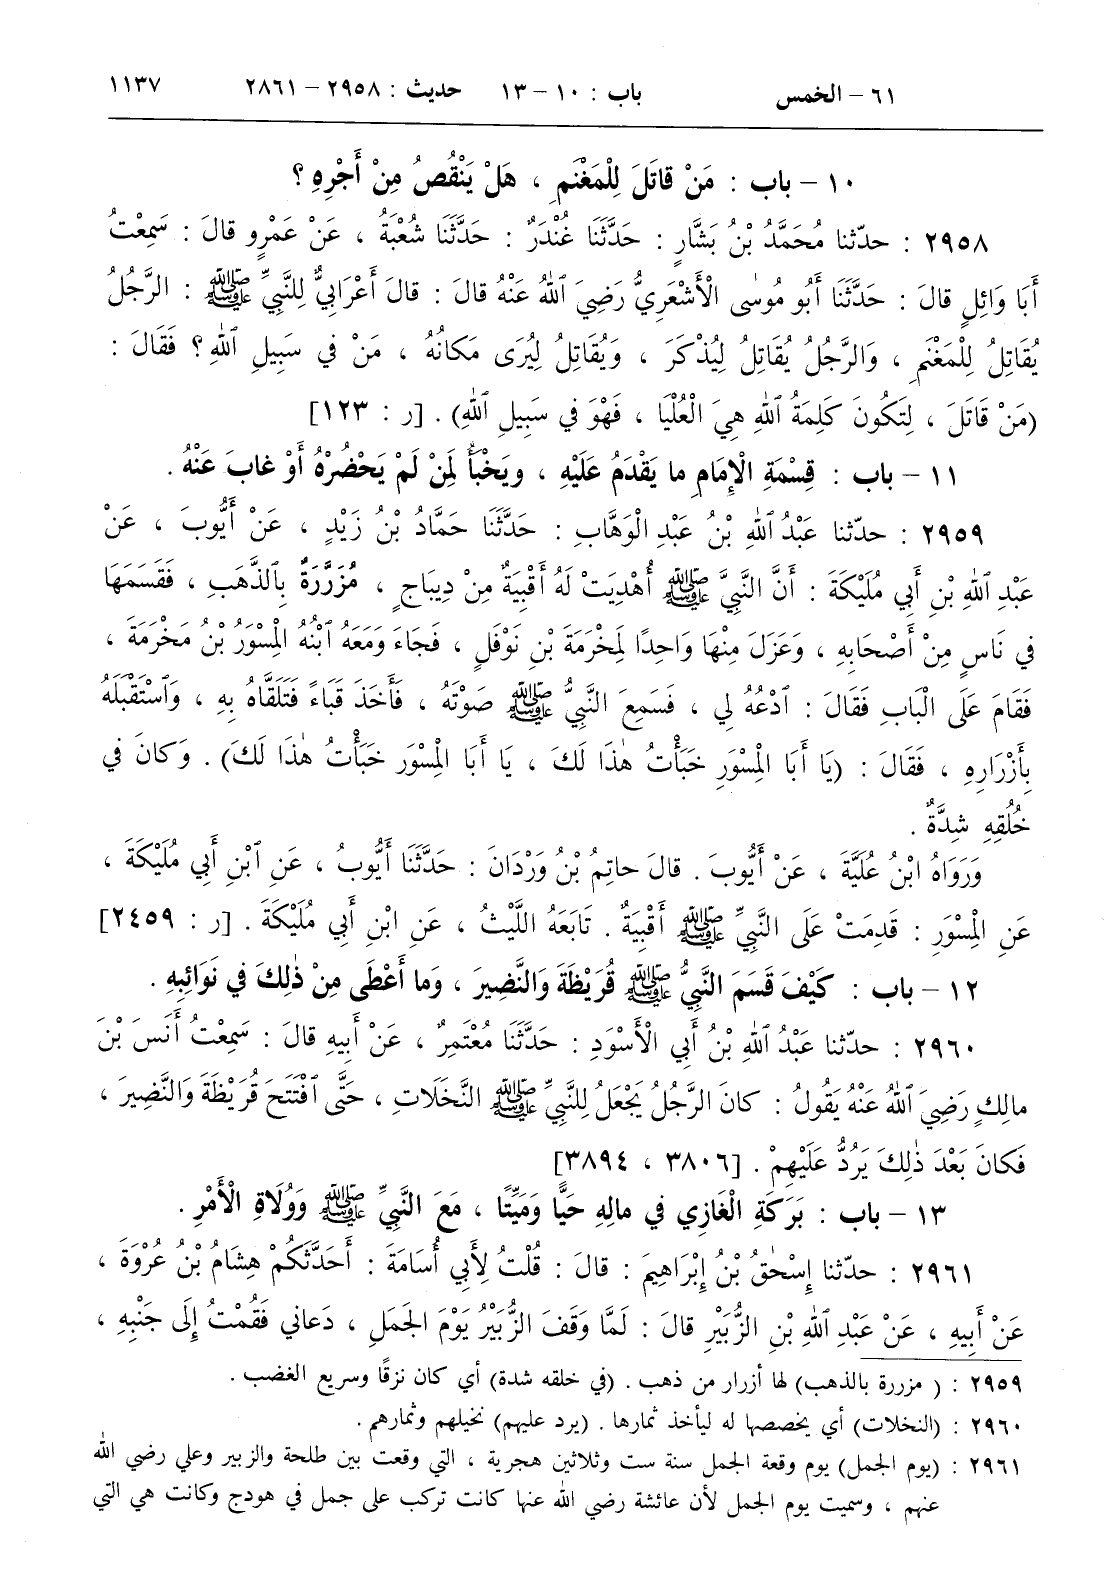 ٦١ – الخمس باب : ١٠ – ١٣ حديث : ٢٩٥٨ – ٢٨٦١ ١١٣٧
١٠ – باب : مَنْ قاتَلَ لِلْمَغْنَمِ ، هَلْ يَنْقُصُ مِنْ أَجْرِهِ ؟
٢٩٥٨ : حدّثنا مُحَمَّدُ بْنُ بَشَّارٍ : حَدَّثَنَا غُنْدَرٌ : حَدَّثَنَا شُعْبَةُ ، عَنْ عَمْرٍو قالَ : سَمِعْتُ
أَبَا وَائِلٍ قالَ : حَدَّثَنَا أَبُو مُوسٰى الْأَشْعَرِيُّ رَضِيَ ٱللهُ عَنْهُ قالَ : قالَ أَعْرَابِيٌّ لِلنَّبِيِّ ﷺ : الرَّجُلُ
يُقَاتِلُ لِلْمَغْنَمِ ، وَالرَّجُلُ يُقَاتِلُ لِيُذْكَرَ ، وَيُقَاتِلُ لِيُرَى مَكانُهُ ، مَنْ في سَبِيلِ ٱللهِ ؟ فَقَالَ :
(مَنْ قَاتَلَ ، لِتَكُونَ كَلِمَةُ ٱللهِ هِيَ الْعُلْيَا ، فَهْوَ في سَبِيلِ ٱللهِ) . [ر : ١٢٣]
١١ – باب : قِسْمَةِ الْإِمَامِ ما يَقْدَمُ عَلَيْهِ ، ويَخْبَأُ لِمَنْ لَمْ يَحْضُرْهُ أَوْ غابَ عَنْهُ .
٢٩٥٩ : حدّثنا عَبْدُ ٱللهِ بْنُ عَبْدِ الْوَهَّابِ : حَدَّثَنَا حَمَّادُ بْنُ زَيْدٍ ، عَنْ أَيُّوبَ ، عَنْ
عَبْدِ ٱللهِ بْنِ أَبِي مُلَيْكَةَ : أَنَّ النَّبِيَّ ﷺ أُهْدِيَتْ لَهُ أَقْبِيَةٌ مِنْ دِيبَاجٍ ، مُزَرَّرَةٌ بِٱلذَّهَبِ ، فَقَسَمَهَا
في نَاسٍ مِنْ أَصْحَابِهِ ، وَعَزَلَ مِنْهَا وَاحِدًا لِمَخْرَمَةَ بْنِ نَوْفَلٍ ، فَجَاءَ وَمَعَهُ ٱبْنُهُ الْمِسْوَرُ بْنُ مَخْرَمَةَ ،
فَقَامَ عَلَى الْبَابِ فَقَالَ : ٱدْعُهُ لِي ، فَسَمِعَ النَّبِيُّ ﷺ صَوْتَهُ ، فَأَخَذَ قَبَاءً فَتَلَقَّاهُ بِهِ ، وَٱسْتَقْبَلَهُ
بِأَزْرَارِهِ ، فَقَالَ : (يَا أَبَا الْمِسْوَرِ خَبَأْتُ هٰذَا لَكَ ، يَا أَبَا الْمِسْوَرِ خَبَأْتُ هٰذَا لَكَ) . وَكانَ في
خُلُقِهِ شِدَّةٌ .
وَرَوَاهُ ابْنُ عُلَيَّةَ ، عَنْ أَيُّوبَ . قالَ حاتِمُ بْنُ وَرْدَانَ : حَدَّثَنَا أَيُّوبُ ، عَنِ ٱبْنِ أَبِي مُلَيْكَةَ ،
عَنِ الْمِسْوَرِ : قَدِمَتْ عَلَى النَّبِيِّ ﷺ أَقْبِيَةٌ . تَابَعَهُ اللَّيْثُ ، عَنِ ابْنِ أَبِي مُلَيْكَةَ . [ر : ٢٤٥٩]
١٢ – باب : كَيْفَ قَسَمَ النَّبِيُّ ﷺ قُرَيْظَةَ وَالنَّضِيرَ ، وَما أَعْطَى مِنْ ذٰلِكَ في نَوَائِبِهِ .
٢٩٦٠ : حدّثنا عَبْدُ ٱللهِ بْنُ أَبِي الْأَسْوَدِ : حَدَّثَنَا مُعْتَمِرٌ ، عَنْ أَبِيهِ قالَ : سَمِعْتُ أَنَسَ بْنَ
مالِكٍ رَضِيَ ٱللهُ عَنْهُ يَقُولُ : كانَ الرَّجُلُ يَجْعَلُ لِلنَّبِيِّ ﷺ النَّخَلَاتِ ، حَتَّى ٱفْتَتَحَ قُرَيْظَةَ وَالنَّضِيرَ ،
فَكانَ بَعْدَ ذٰلِكَ يَرُدُّ عَلَيْهِمْ . [٣٨٠٦ ، ٣٨٩٤]
١٣ – باب : بَرَكَةِ الْغَازِي في مالِهِ حَيًّا وَمَيِّتًا ، مَعَ النَّبِيِّ ﷺ وَوُلَاةِ الْأَمْرِ .
٢٩٦١ : حدّثنا إِسْحٰقُ بْنُ إِبْرَاهِيمَ : قالَ : قُلْتُ لِأَبِي أُسَامَةَ : أَحَدَّثَكُمْ هِشَامُ بْنُ عُرْوَةَ ،
عَنْ أَبِيهِ ، عَنْ عَبْدِ ٱللهِ بْنِ الزُّبَيْرِ قالَ : لَمَّا وَقَفَ الزُّبَيْرُ يَوْمَ الجَمَلِ ، دَعانِي فَقُمْتُ إِلَى جَنْبِهِ ،
٢٩٥٩ : ( مزررة بالذهب) لها أزرار من ذهب . (في خلقه شدة) أي كان نزقًا وسريع الغضب .
٢٩٦٠ : (النخلات) أي يخصصها له ليأخذ ثمارها . (يرد عليهم) نخيلهم وثمارهم .
٢٩٦١ : (يوم الجمل) يوم وقعة الجمل سنة ست وثلاثين هجرية ، التي وقعت بين طلحة والزبير وعلي رضي الله
عنهم ، وسميت يوم الجمل لأن عائشة رضي الله عنها كانت تركب على جمل في هودج وكانت هي التي